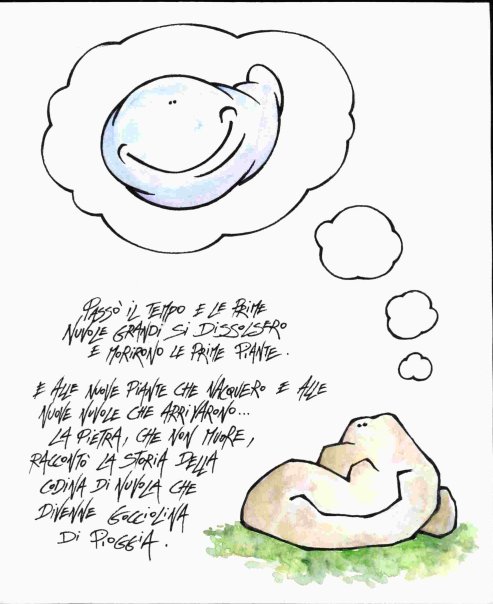 PASSÒ IL TEMPO E LE PRIME
NUVOLE GRANDI SI DISSOLSERO
E MORIRONO LE PRIME PIANTE.
E ALLE NUOVE PIANTE CHE NACQUERO E ALLE
NUOVE NUVOLE CHE ARRIVARONO...
LA PIETRA, CHE NON MUORE,
RACCONTÒ LA STORIA DELLA
CODINA DI NUVOLA CHE
DIVENNE GOCCIOLINA
DI PIOGGIA.